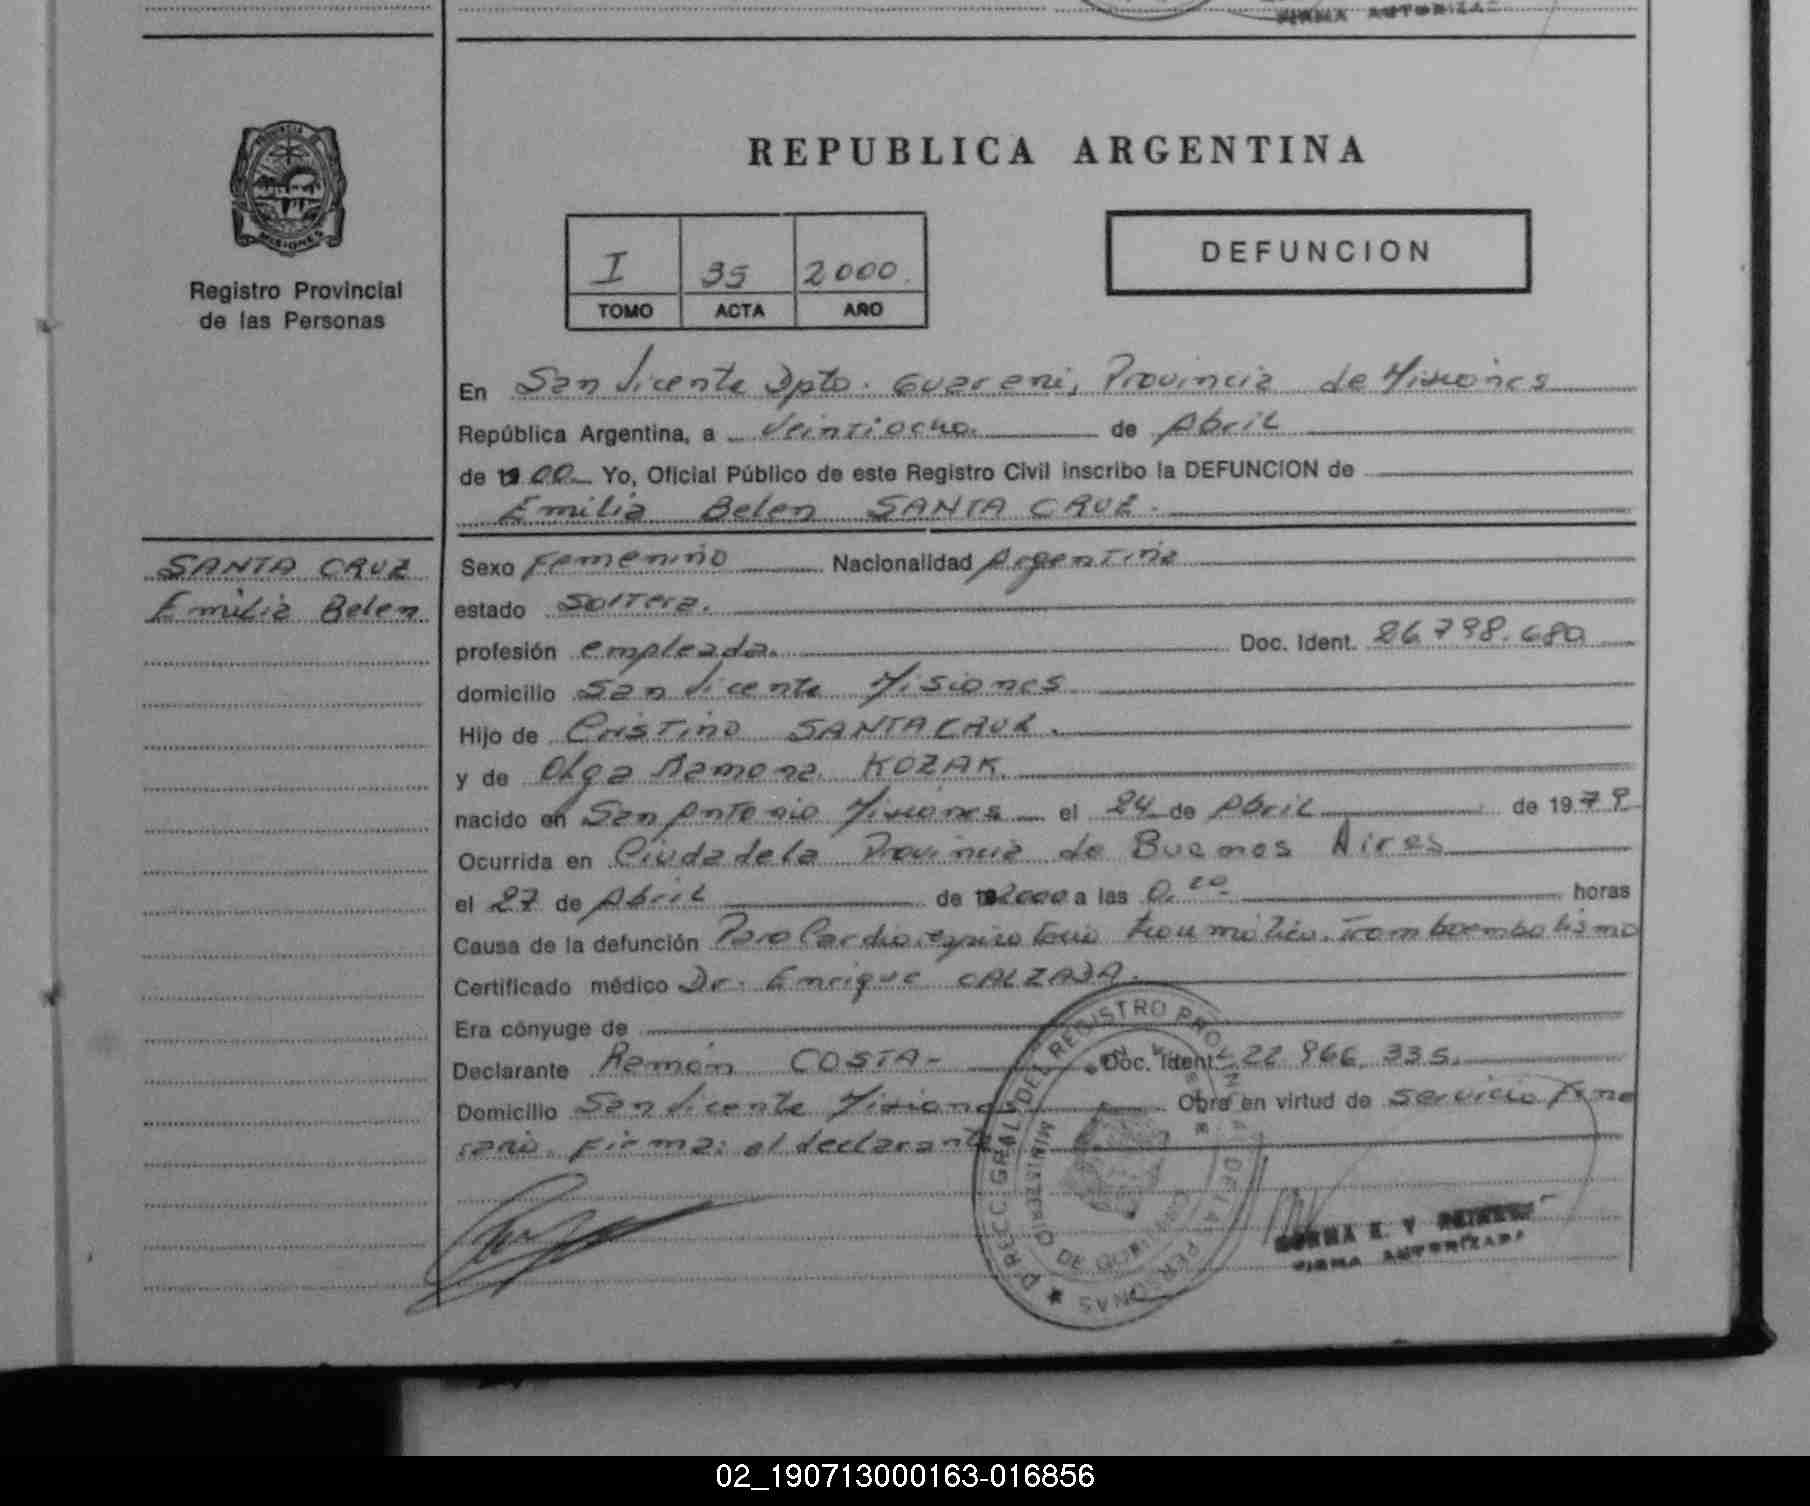 FIRMA AUTORIZA
PROVINCIA DE
MISIONES
Registro Provincial
de las Personas
REPUBLICA ARGENTINA
I 35 2000.
TOMO ACTA AÑO
DEFUNCION
En San Vicente Dpto. Guarani, Provincia de Misiones
República Argentina, a Veintiocho. de Abril
de 19 00 Yo, Oficial Público de este Registro Civil inscribo la DEFUNCION de
Emilia Belen SANTA CRUZ.
SANTA CRUZ
Emilia Belen
Sexo Femenino Nacionalidad Argentina
estado Soltera.
profesión empleada. Doc. Ident. 26.798.680
domicilio San Vicente Misiones
Hijo de Cristino SANTACRUZ.
y de Olga Ramona KOZAK.
nacido en San Antonio Misiones el 24 de Abril de 1979
Ocurrida en Ciudadela Provincia de Buenos Aires
el 27 de Abril de 2000 a las 0.20 horas
Causa de la defunción Paro Cardiorespiratorio traumático. Tromboembolismo
Certificado médico Dr. Enrique CALZADA.
Era cónyuge de
Declarante Ramón COSTA- Doc. Ident. 22 966.335.
Domicilio San Vicente Misiones Obra en virtud de Servicio Fune
rario. Firma: el declarante
DIRECC. GRAL. DEL REGISTRO PROVINCIAL DE LAS PERSONAS
MINISTERIO DE GOBIERNO
NORMA E. V
FIRMA AUTORIZADA
02_190713000163-016856